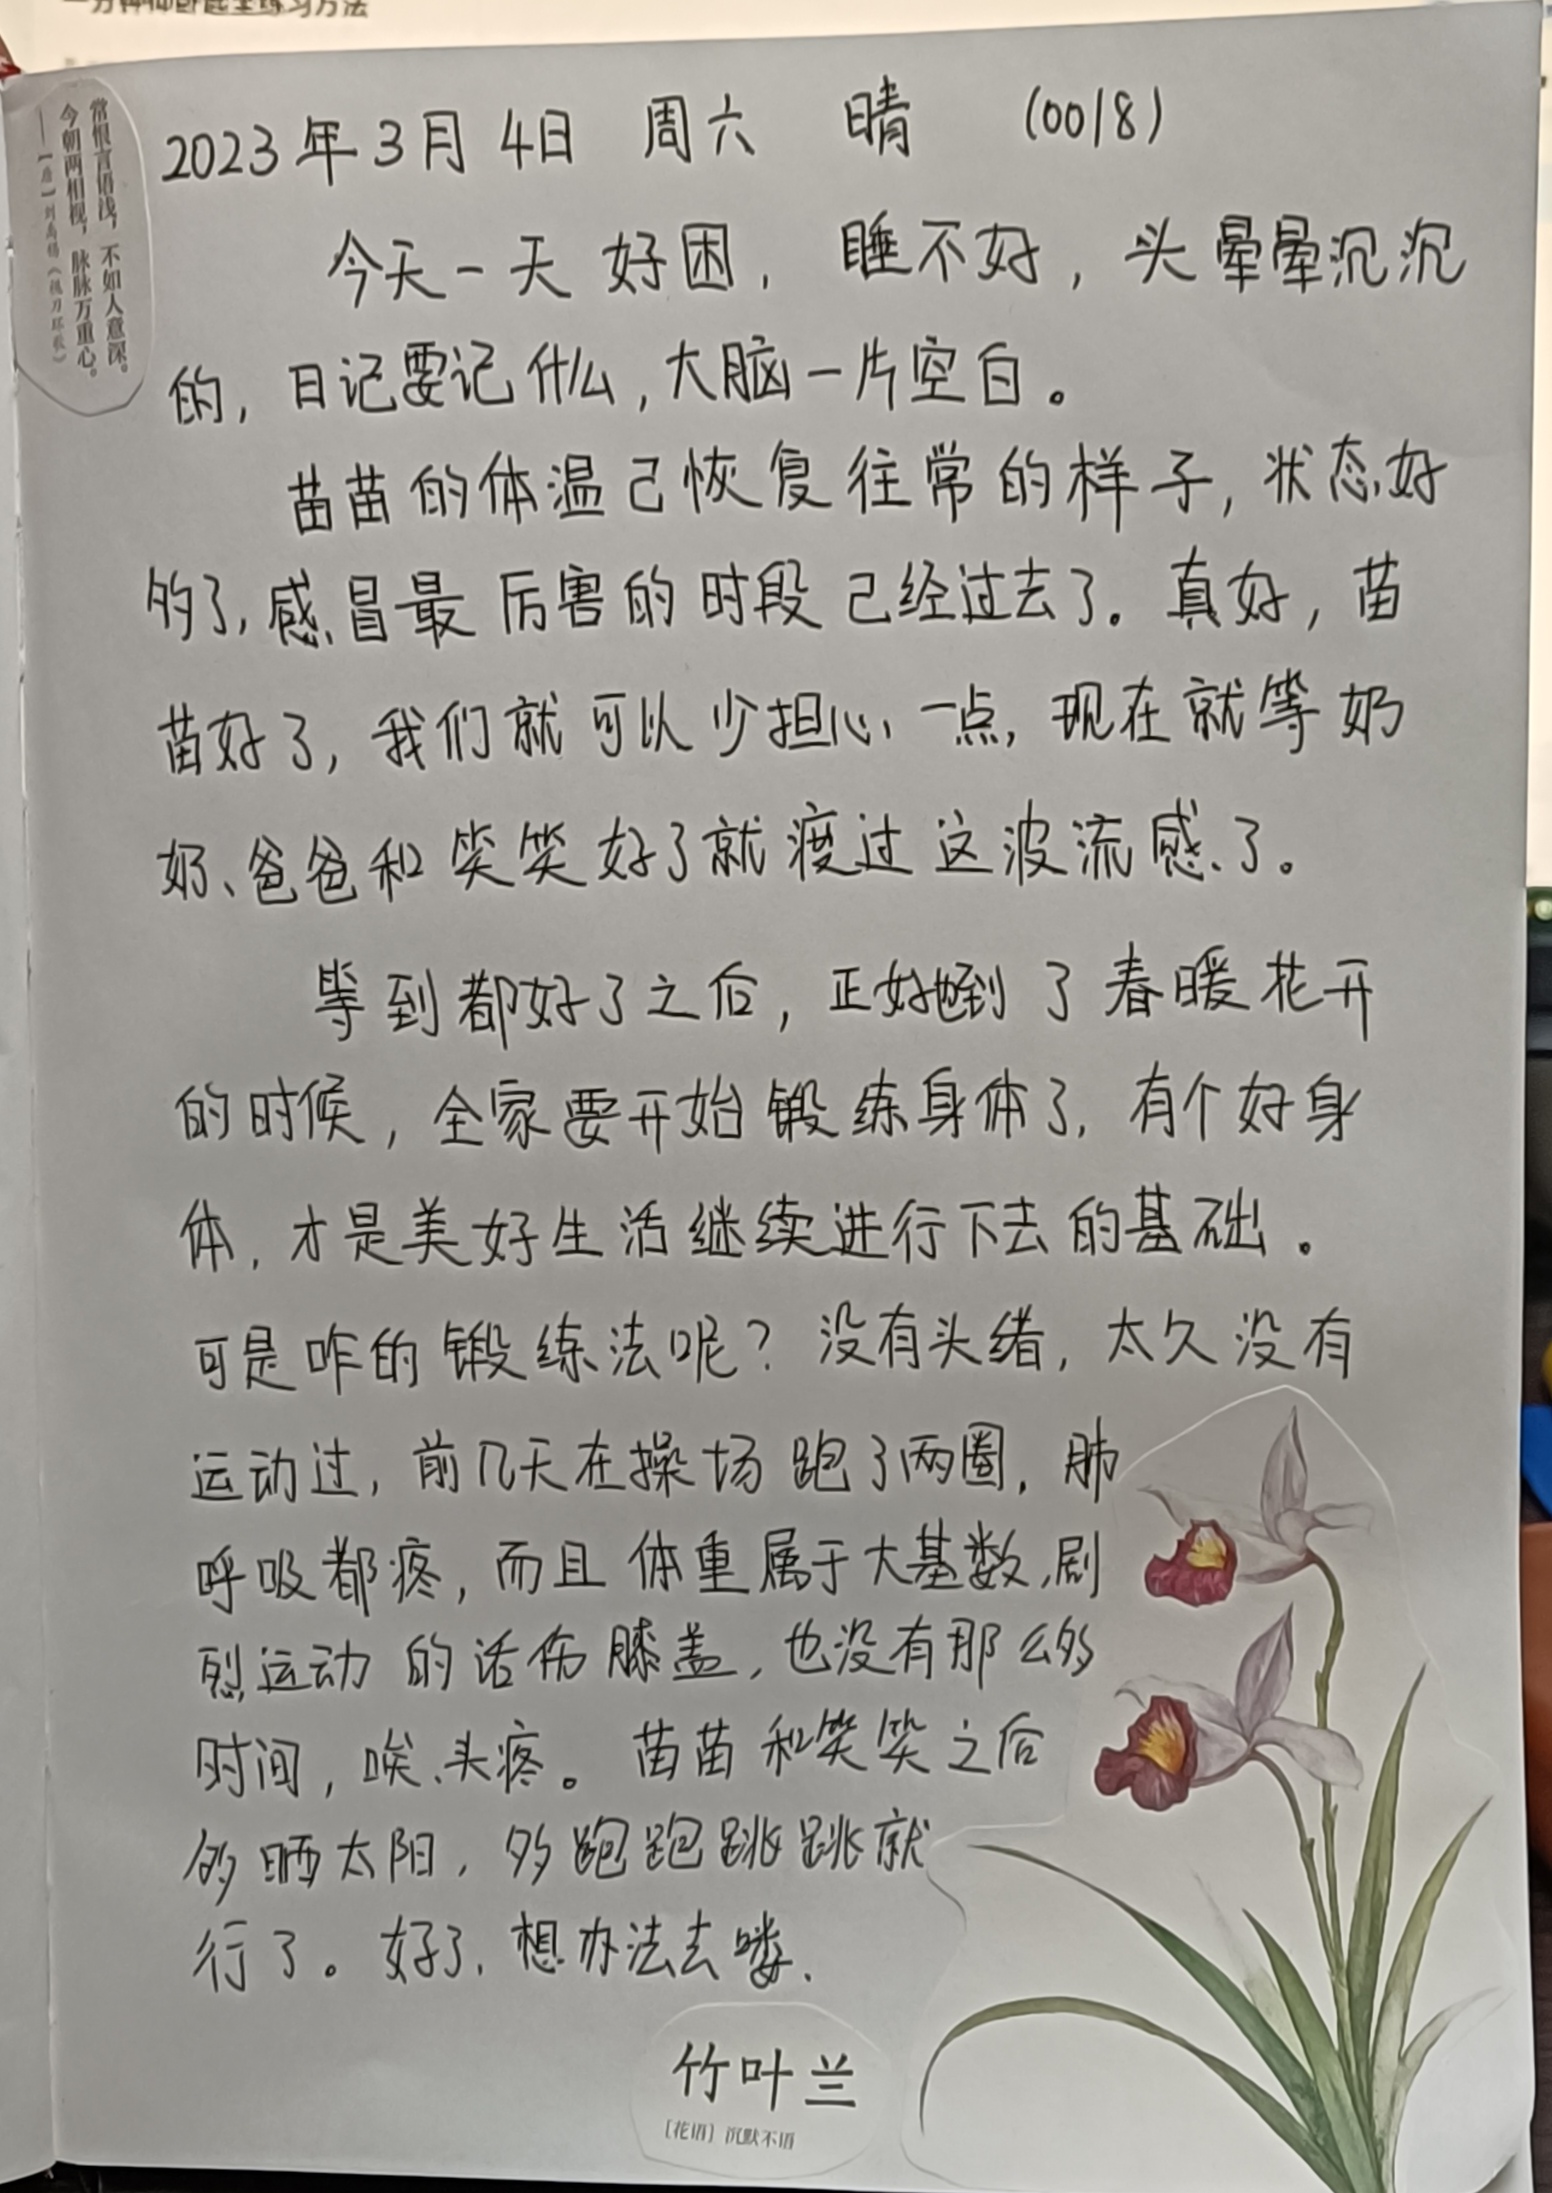 常恨言语浅，不如人意深。
今朝两相视，脉脉万重心。
——【唐】刘禹锡《视刀环歌》
2023年3月4日 周六 晴 (0018)
今天一天好困， 睡不好，头晕晕沉沉
的，日记要记什么，大脑一片空白。
苗苗的体温已恢复往常的样子，状态好
多了，感冒最厉害的时段已经过去了。真好，苗
苗好了，我们就可以少担心一点，现在就等奶
奶、爸爸和笑笑好了就渡过这波流感了。
等到都好了之后，正好到了春暖花开
的时候，全家要开始锻练身体了，有个好身
体，才是美好生活继续进行下去的基础。
可是咋的锻练法呢？没有头绪，太久没有
运动过，前几天在操场跑了两圈，肺
呼吸都疼，而且体重属于大基数，剧
烈运动的话伤膝盖，也没有那么多
时间，唉、头疼。苗苗和笑笑之后
多晒太阳，多跑跑跳跳就
行了。好了，想办法去喽.
竹叶兰
[花语] 沉默不语